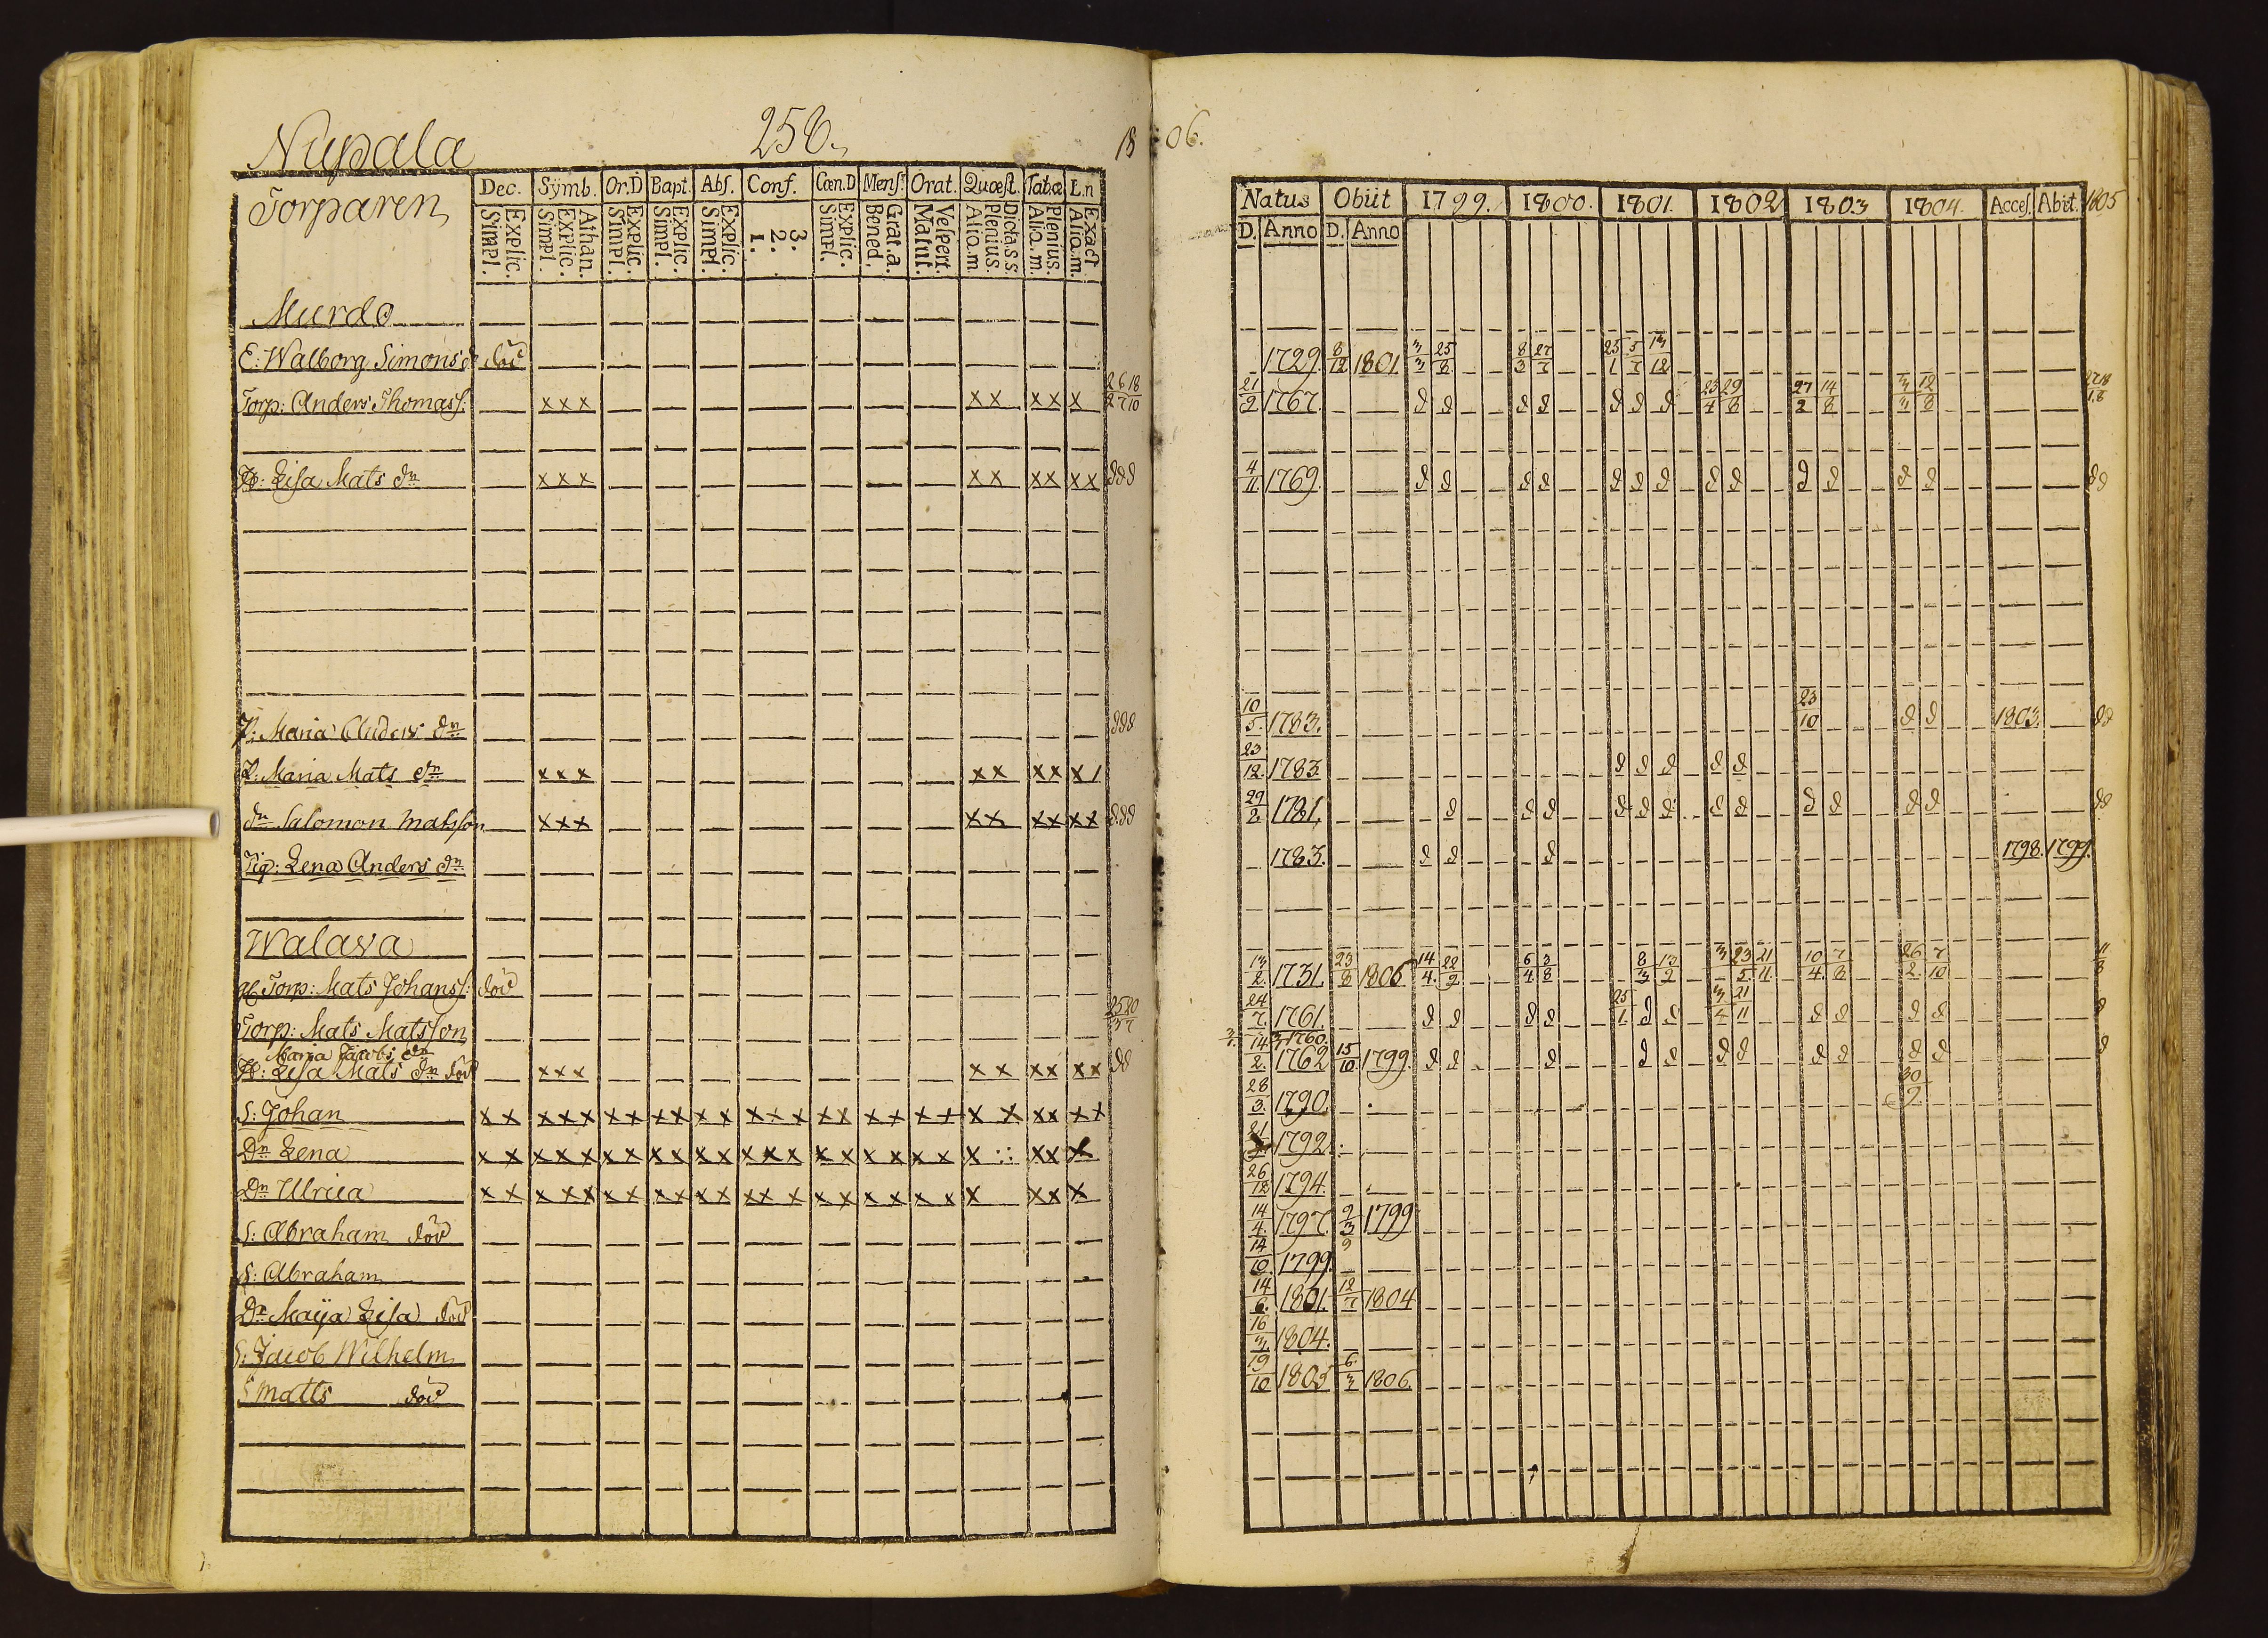 Nupala
258.
18
06.
Torparen
Dec. Symb. Or.D Bapt. Abs. Conf. Cœn.D Mens. Orat. Quæst. Tabæ L.n
Explic. Simpl. Athan. Explic. Simpl. Explic. Simpl. Explic. Simpl. Explic. Simpl. 3. 2. 1. Explic. Simpl. Grat.a. Bened. Vespert. Matut. Dicta.s.s. Plenius. Aliq.m. Plenius. Aliq.m. Exact. Aliq.m.
Natus Obiit 1799. 1800. 1801. 1802 1803 1804. Acces. Abit. 1805
D. Anno D. Anno
Murdo
E: Walborg Simons d död 1729. 8/12 1801 3/3 25/8 8/3 27/7 25/1 5/7 13/12
Torp: Anders Thomass: xxx xx xx x 21/2 1767. d d d d d d d 23/4 29/8 27/2 14/8 3/3 12/8
H: Lisa Mats dn xxx xx xx xx ddd 4/11 1769. d d d d d d d d d d d d d dd
P: Maria Anders dn ddd 10/5 1783. 23/10 d d 1803. dd
P: Maria Mats dn xxx xx xx x/ 23/12 1783 d d d d d
dn Salomon Matsson xxx xx xx xx ddd 29/2 1781, d d d d d d d d d d d d dd
Pig: Lena Anders dn 1783. d d d 1798. 1799.
Walava
Torp: Mats Johanss: död 13/2 1731. 23/8 1806 14/4 22/9 6/4 3/8 8/3 13/2 3 23/5 21/11 10/4 7/8 26/2 7/10 11/8
Torp: Mats Matsson 24/7 1761. d d d d 25/1 d d 3/4 21/11 d d d d d
Maria Jacobs dn 1760.
H: Lisa Mats dn död xxx xx xx xx dd 14/2 1762 15/10 1799. d d d d d d d d d d d d
S: Johan xx xxx xx xx xx xxx xx xx xx x x xx xx 28/3 1790. 30/9
Dn Lena xx xxx xx xx xx xxx xx xx xx x xx x 21 1792.
Dn Ulrica xx xxx xx xx xx xxx xx xx xx x xx x 26/12 1794.
S: Abraham död 14/4 1797. 9/3 1799
S: Abraham 14/10 1799.
Dn Maija Lisa död 14/6 1801. 12/7 1804
S: Jacob Wilhelm 16/3 1804.
S Matts död 19/10 1805 6/3 1806.